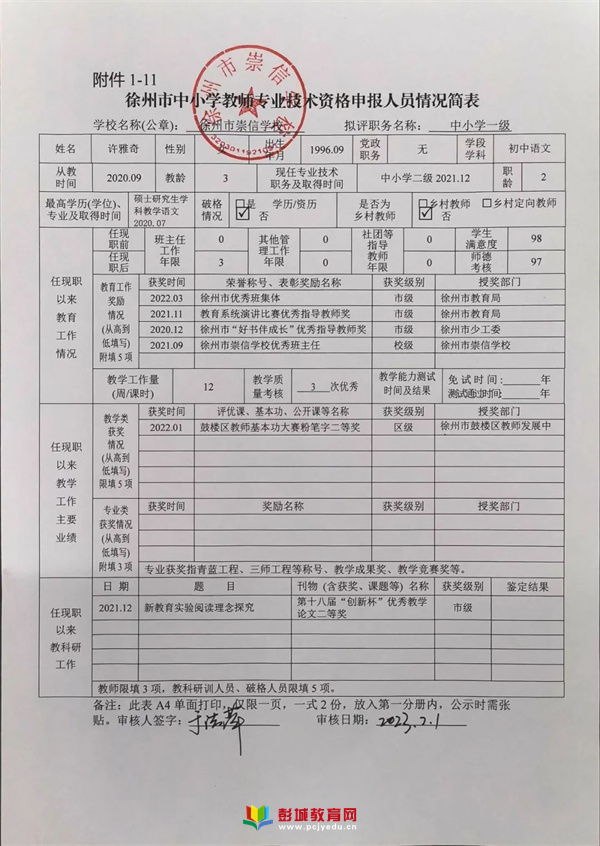 附件 1-11
徐州市中小学教师专业技术资格申报人员情况简表
学校名称(公章): 徐州市崇信学校 拟评职务名称: 中小学一级
姓名 许雅奇 性别 女 出生年月 1996.09 党政职务 无 学段学科 初中语文
从教时间 2020.09 教龄 3 现任专业技术职务及取得时间 中小学二级 2021.12 职龄 2
最高学历(学位)、专业及取得时间 硕士研究生学科教学语文 2020.07 破格情况 □是 学历/资历 ☑否 是否为乡村教师 □乡村教师 □乡村定向教师 ☑否
任现职以来教育工作情况
任现职前 班主任工作年限 0 其他管理工作年限 0 社团等指导教师年限 0 学生满意度 98
任现职后 3 0 0 师德考核 97
教育工作奖励情况(从高到低填写)附填5项
获奖时间 荣誉称号、表彰奖励名称 获奖级别 授奖部门
2022.03 徐州市优秀班集体 市级 徐州市教育局
2021.11 教育系统演讲比赛优秀指导教师奖 市级 徐州市教育局
2020.12 徐州市“好书伴成长”优秀指导教师奖 市级 徐州市少工委
2021.09 徐州市崇信学校优秀班主任 校级 徐州市崇信学校
任现职以来教学工作主要业绩
教学工作量(周/课时) 12 教学质量考核 3 次优秀 教学能力测试时间及结果 免试时间: 年
测试通过时间: 年
教学类获奖情况(从高到低填写)限填5项
获奖时间 评优课、基本功、公开课等名称 获奖级别 授奖部门
2022.01 鼓楼区教师基本功大赛粉笔字二等奖 区级 徐州市鼓楼区教师发展中
专业类获奖情况(从高到低填写)附填3项
获奖时间 奖励名称 获奖级别 授奖部门
专业获奖指青蓝工程、三师工程等称号、教学成果奖、教学竞赛奖等。
任现职以来教科研工作
日 期 题 目 刊物(含获奖、课题等)名称 获奖级别 鉴定结果
2021.12 新教育实验阅读理念探究 第十八届“创新杯”优秀教学论文二等奖 市级
教师限填3项,教科研训人员、破格人员限填5项。
备注:此表A4单面打印,仅限一页,一式2份,放入第一分册内,公示时需张
贴。审核人签字: 审核日期: 2023.2.1
彭城教育网
www.pcjyedu.cn